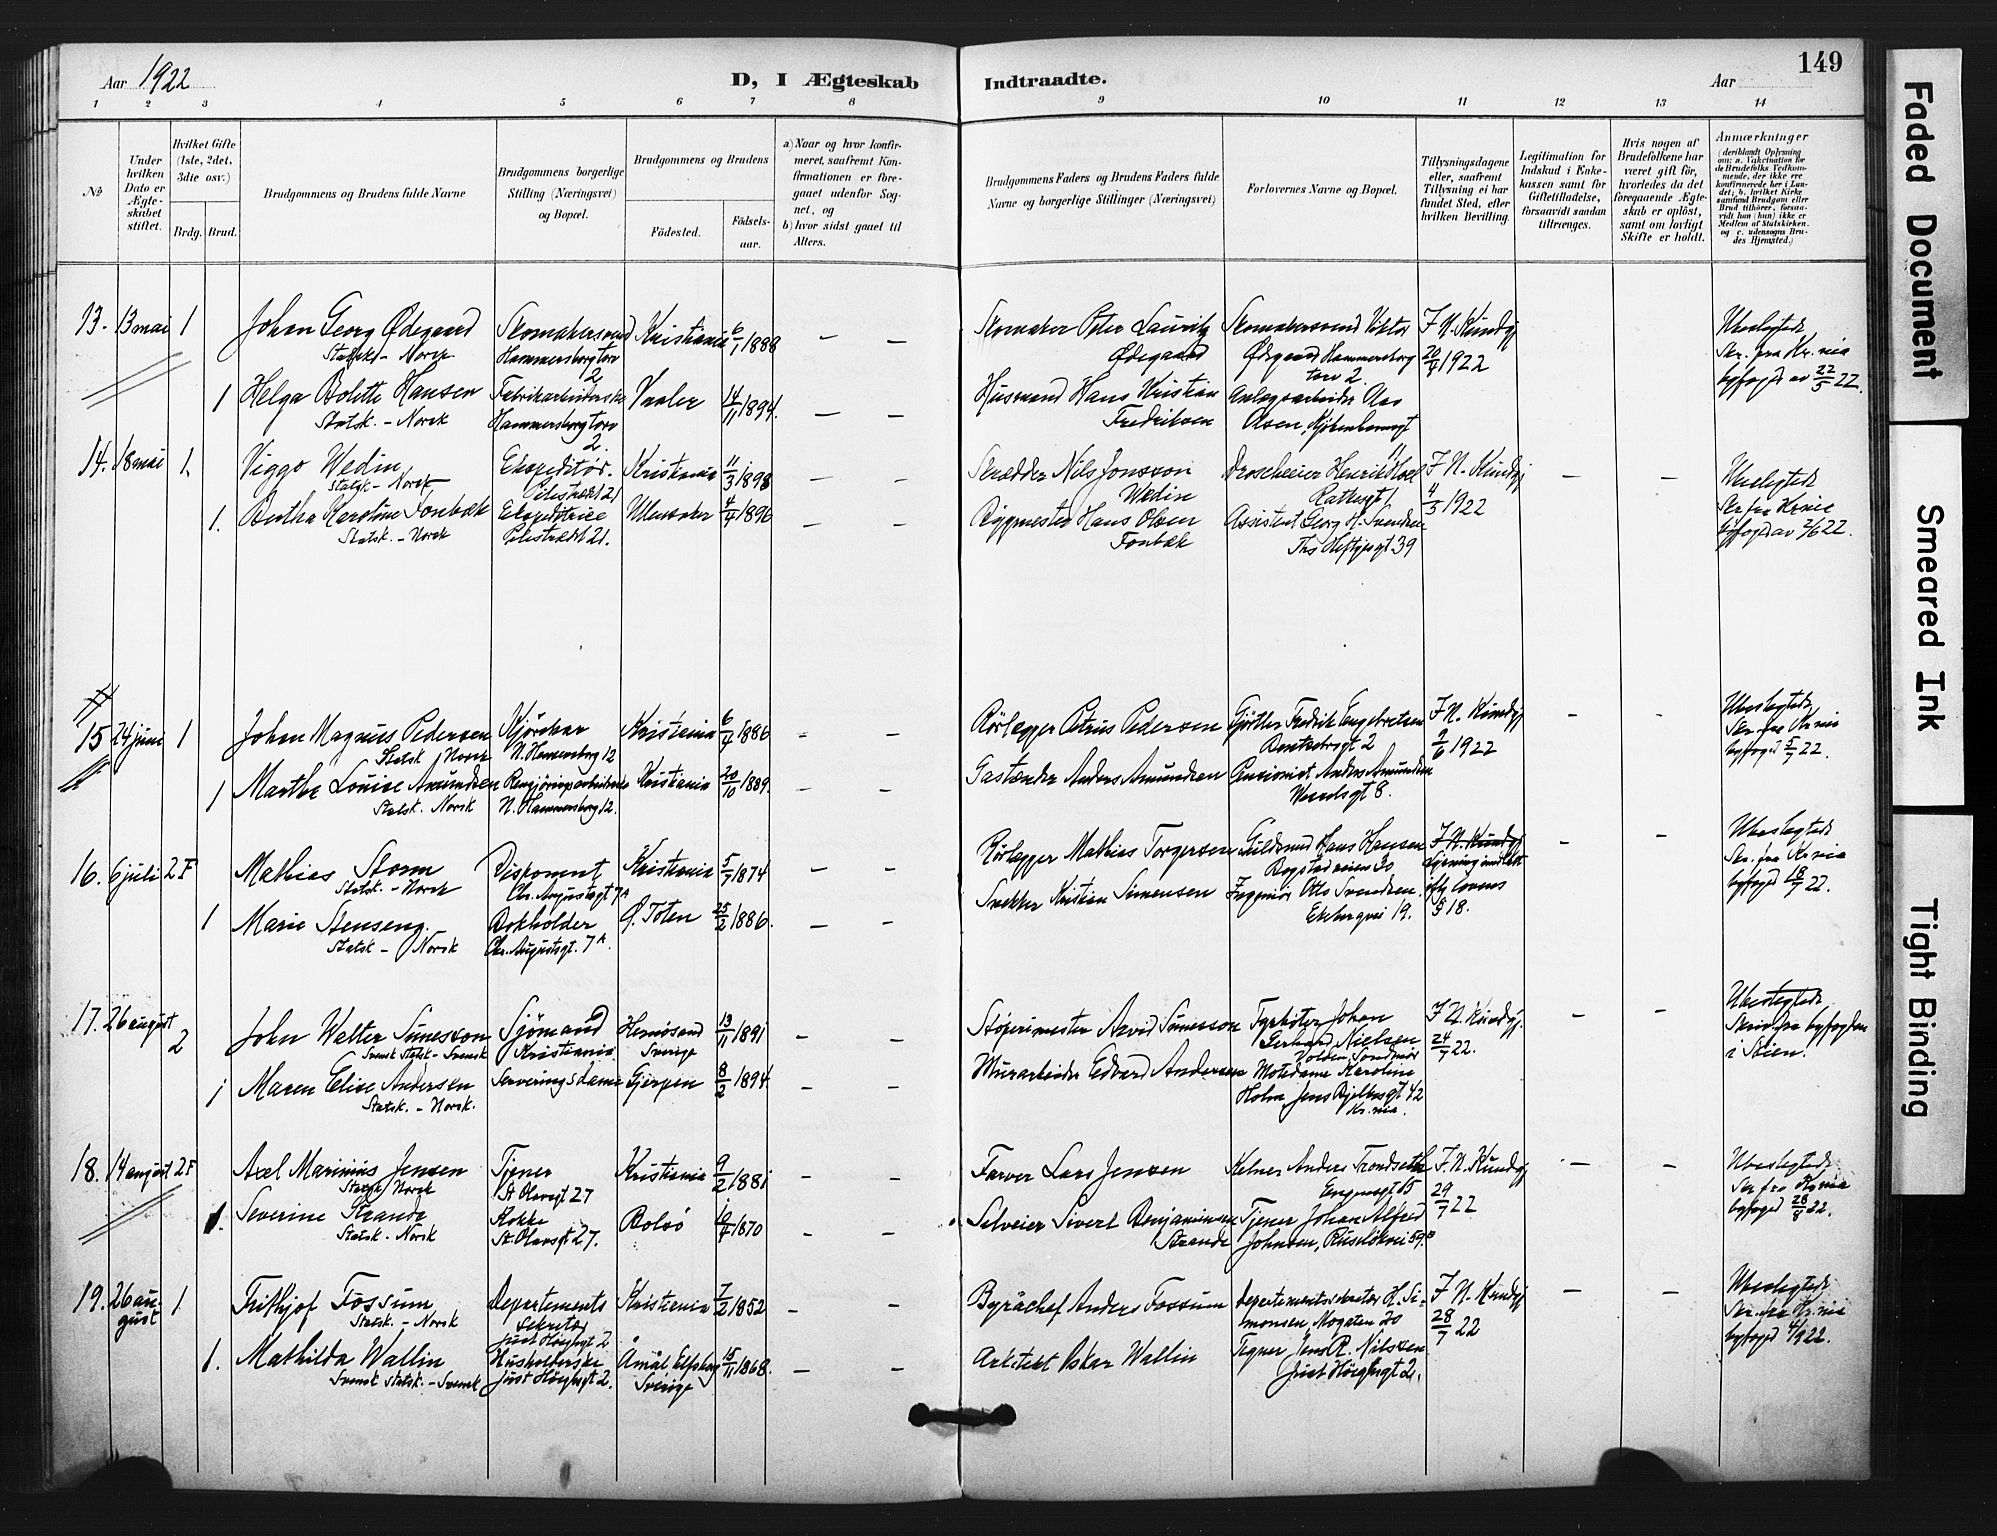 149
Aar 1922
D, I Ægteskab
Indtraadte.
Aar
1 2 3 4 5 6 7 8
9 10 11 12 13 14
No
Under hvilken Dato er Ægteskabet stiftet.
Hvilket Gifte (1ste, 2det, 3die osv.)
Brdg. Brud.
Brudgommens og Brudens fulde Navne
Brudgommens borgerlige Stilling (Næringsvei) og Bopæl.
Brudgommens og Brudens
Fødested.
Fødselsaar.
a) Naar og hvor konfirmeret, saafremt Konfirmationen er foregaaet udenfor Sognet, og
b) hvor sidst gaaet til Alters.
Brudgommens Faders og Brudens Faders fulde Navne og borgerlige Stillinger (Næringsvei)
Forlovernes Navne og Bopæl.
Tillysningsdagene eller, saafremt Tillysning ei har fundet Sted, efter hvilken Bevilling.
Legitimation for Indskud i Enkekassen samt for Giftetilladelse, forsaavidt saadan tiltrænges.
Hvis nogen af Brudefolkene har været gift før, hvorledes da det foregaaende Ægteskab er opløst, samt om lovligt Skifte er holdt.
Anmærkninger
13. 13 mai 1 Johan Georg Ødegaard
Statsk - Norsk
Skomakersvend
Hammersborgtorv 2
Kristiania 6/1 1888 — —
Skomaker Peter Lauritz Ødegaard
Skomakersvend Viktor Ødegaard Hammersborg torv 2
F. N. Kundgj 20/4 1922
Ubeslegtede
Skr. fra Kr.nia byfogd av 22/5 22.
1 Helga Bolette Hansen
Statsk. - Norsk
Fabrikarbeiderske
Hammersborgtorv 2.
Vaaler 14/11 1894. — —
Husmand Hans Kristian Fredriksen
Anlægsarbeider
14. 18 mai 1. Viggo Wedin
Statsk - Norsk
Ekspeditør.
Pilestrædet 21
Kristiania 11/3 1898 — —
Skrædder Nils Jonsson Wedin
F. N. Kundgj 4/5 1922 — —
Ubeslegtede
Skr fra Kr.nia byfogd av 2/6 22.
1. Bertha Karoline Fonbæk
Statsk. - Norsk
Ekspeditrice
Pilestrædet 21.
Ullensaker 4/4 1896 — —
Bygmester Hans Olsen Fonbæk
Assistent Georg H. Svendsen
Ths Heftyesgt 39
15 24 juni 1 Johan Magnus Pedersen
Statsk Norsk
N. Hammersborg 12
Kristiania 6/4 1886 - -
Rørlægger Petrus Pedersen
Gjørtler Fredrik Engebretsen
F. N. Kundgj 9/6 1922 - -
Ubeslegtede
Skr. fra Kr.nia byfogd 5/7 22.
1 Marthe Louise Amundsen
Statsk. Norsk
Rengjøringsarbeiderske
N. Hammersborg 12.
Kristiania 20/10 1889. — -
Gastænder Anders Amundsen
Pensionist Anders Amundsen
8.
16. 6 juli 2 F Mathias Storm
Statsk. - Norsk
Disponent
Chr. Augustsgt 7A
Kristiania 5/7 1874 - -
Rørlægger Mathias Torgersen
Guldsmed Hans Hansen
Bogstadveien 30
F. N. Kundgj
Lysning
lovens § 18. - -
Ubeslegtede
Skr. fra Kr.nia byfogd 18/7 22.
1 Marie Stenseng.
Statsk - Norsk
Bokholder
Chr. Augustsgt. 7A.
Ø. Toten 25/2 1886. — -
Snekker Kristian Simensen
Ingeniør Otto Svendsen.
Ekebergvei 19.
17. 26 august 2 John Walter Sunesson
Svensk Statsk - Svensk
Sjömand
Kristiania.
Hernøsand
Sverige
13/11 1891 - -
Støperimester Arvid Sunesson
Fyrbøter Johan Gerhard Nielsen
Volden, Søndmør
F. N. Kundgj. 24/7 22. - -
Ubeslegtede,
Skr. fra byfogden i Skien.
1 Maren Elise Andersen
Statsk. - Norsk.
Serveringsdame
Gjerpen 8/2 1894. - -
Murarbeider Edvard Andersen
Motedame Karoline
Holm Jens Bjelkesgt 42
Kr.nia.
18. 14 august 2F Axel Marinius Jensen
Statsk Norsk
Tjener
St Olavsgt 27
Kristiania 9/2 1881 - -
Farver Lars Jensen
Kelner Anders Trondseth
Enggensgt 15
F. N. Kundgj 29/7 22 - -
Ubeslegtede
Skr fra Kr.nia byfogd 28/8 22.
1. Severine Strande
Statsk. - Norsk
Kokke
St. Olavsgt 27.
Bolsø 10/4 1870 - -
Selveier Sivert Benjaminsen Strande
Tjener Johan Alfred Johnsen, Ruseløkvei 59.
19. 26 august 1 Frithjof Fossum
Statsk. - Norsk
Departements sekretær
Just Høeghsgt 2
Kristiania 7/2 1852 - -
Byråchef Anders Fossum
Departementssekretær H. Simonsen, Mogaten 20
F. N. Kundgj 28/7 22 - -
Ubeslegtede
Skr. fra Kr.nia byfogd 4/9 22.
1. Mathilda Wallin
Svensk Statsk. - Svensk
Husholderske
Just Høeghsgt 2.
Åmål Elfsborg
Sverige
15/11 1868. - -
Arkitekt Oskar Wallin
Tegner Jens R. Nilssen
Just Høeghsgt 2.
Faded Document
Smeared Ink
Tight Binding